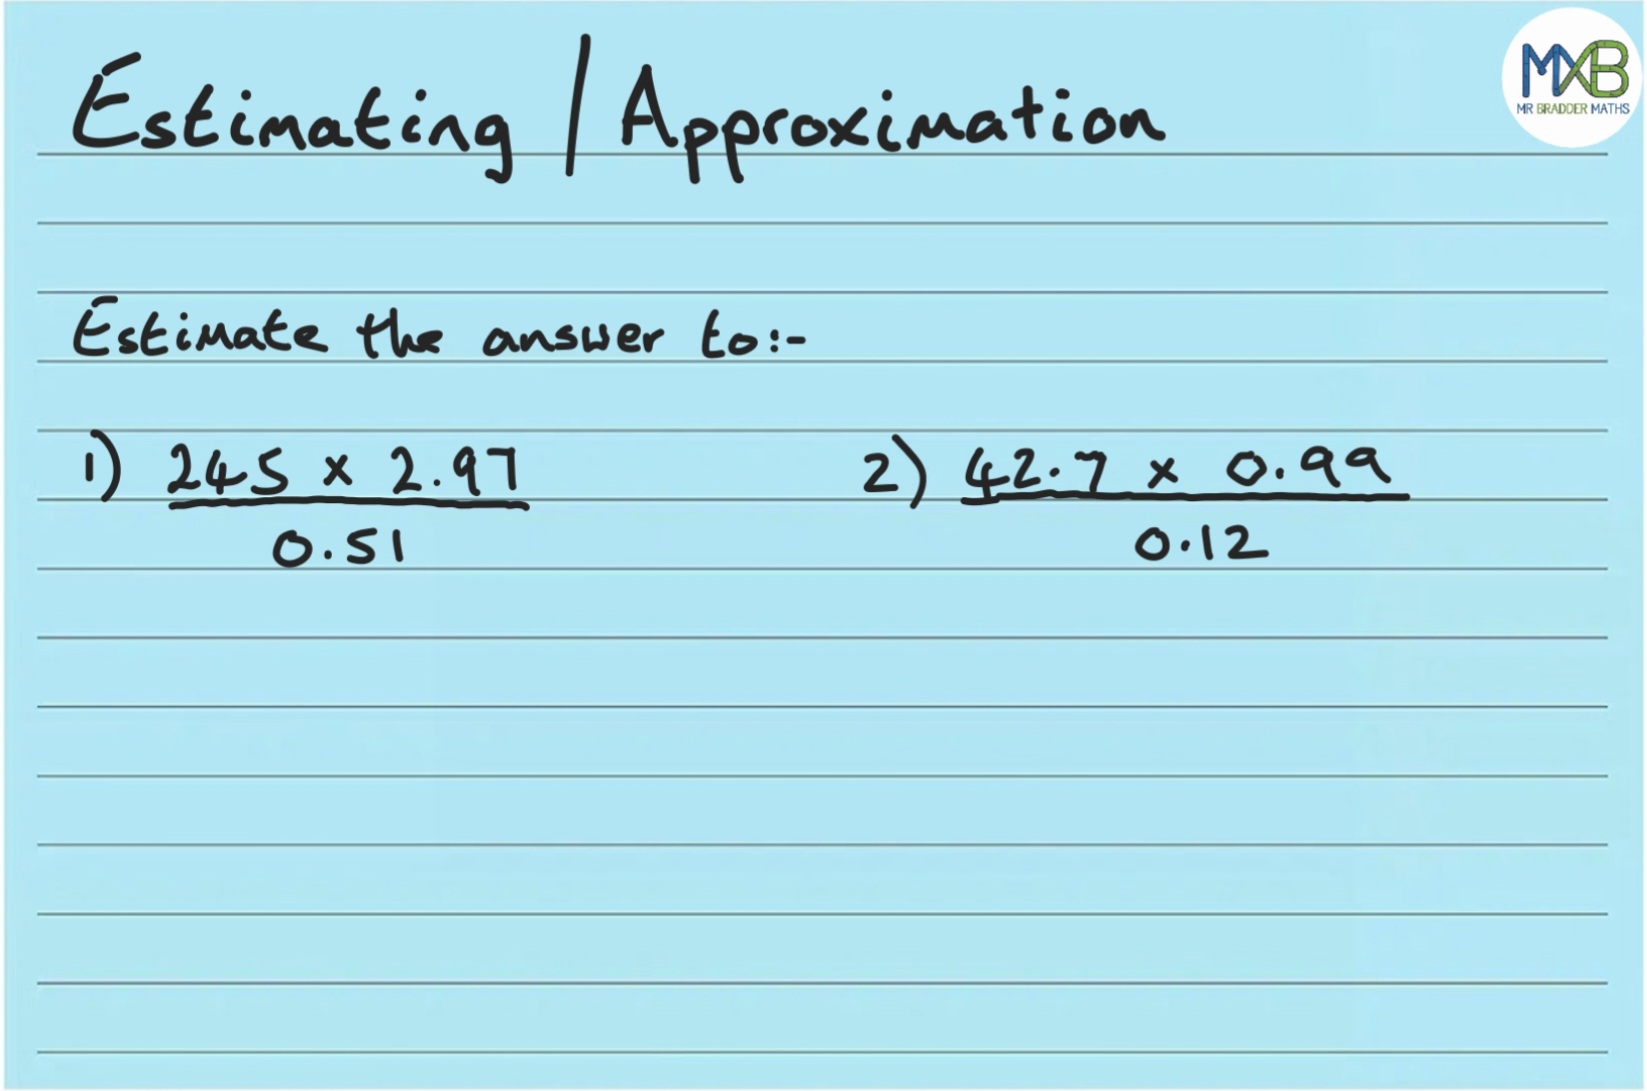 Estimating / Approximation
MXB
MR BRADDER MATHS
Estimate the answer to:-
1) 245 x 2.97
0.51
2) 42.7 x 0.99
0.12